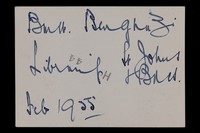 Brit. Benghazi
Library St Johns
BB H & Brit.
Feb 1955